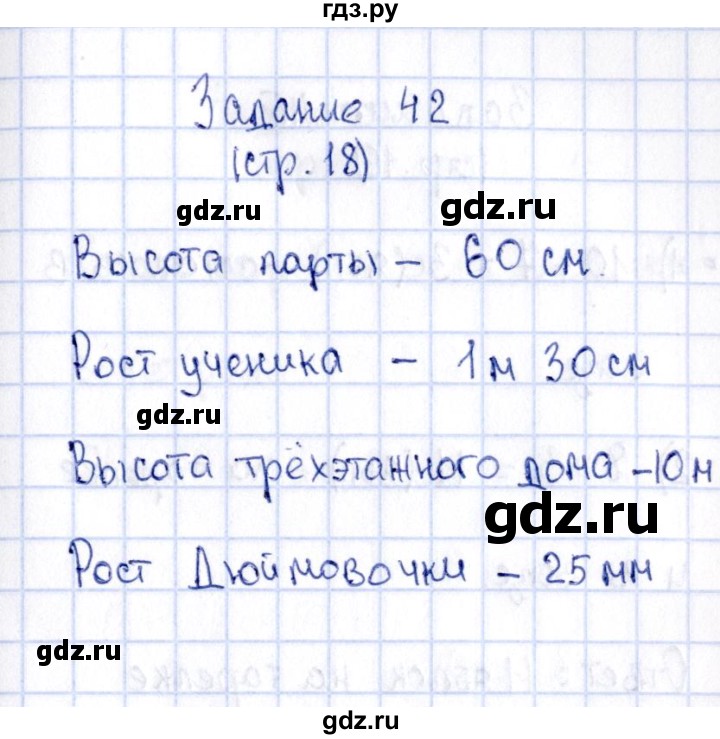 гдз.ру
Задание 42
(стр. 18)
gdz.ru gdz.ru
Высота парты – 60 см.
Рост ученика – 1 м 30 см
gdz.ru
Высота трёхэтажного дома – 10 м
gdz.ru
Рост Дюймовочки – 25 мм
gdz.ru
gdz.ru